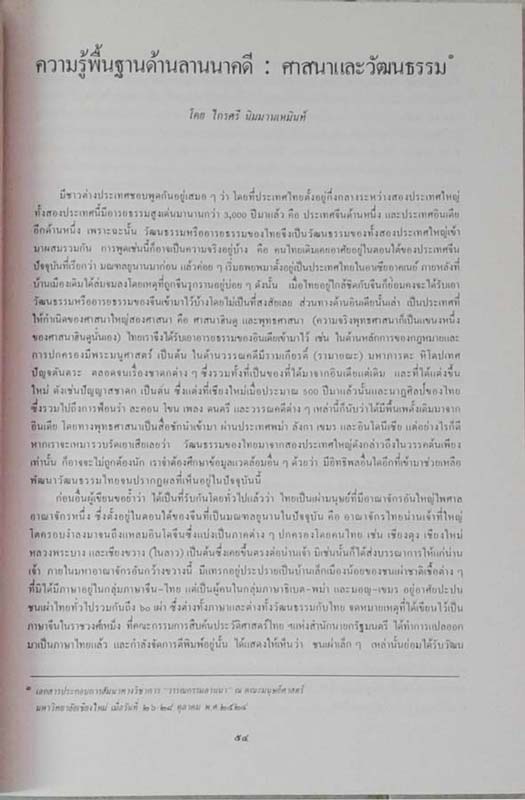 ความรู้พื้นฐานด้านลานนาคดี : ศาสนาและวัฒนธรรม*
โดย ไกรศรี นิมมานเหมินท์
มีชาวต่างประเทศชอบพูดกันอยู่เสมอ ๆ ว่า โดยที่ประเทศไทยตั้งอยู่กึ่งกลางระหว่างสองประเทศใหญ่
ทั้งสองประเทศนี้มีอารยธรรมสูงเด่นมานานกว่า 3,000 ปีมาแล้ว คือ ประเทศจีนด้านหนึ่ง และประเทศอินเดีย
อีกด้านหนึ่ง เพราะฉะนั้น วัฒนธรรมหรืออารยธรรมของไทยจึงเป็นวัฒนธรรมของทั้งสองประเทศใหญ่เข้า
มาผสมรวมกัน การพูดเช่นนี้ก็อาจเป็นความจริงอยู่บ้าง คือ คนไทยเดิมเคยอาศัยอยู่ในตอนใต้ของประเทศจีน
ปัจจุบันที่เรียกว่า มณฑลยูนานมาก่อน แล้วค่อย ๆ เริ่มอพยพมาตั้งอยู่เป็นประเทศไทยในอาเซียอาคเนย์ ภายหลังที่
บ้านเมืองเดิมได้ล่มจมลงโดยเหตุที่ถูกจีนรุกรานอยู่บ่อย ๆ ดังนั้น เมื่อไทยอยู่ใกล้ชิดกับจีนก็ย่อมคงจะได้รับเอา
วัฒนธรรมหรืออารยธรรมของจีนเข้ามาไว้บ้างโดยไม่เป็นที่สงสัยเลย ส่วนทางด้านอินเดียนั้นเล่า เป็นประเทศที่
ให้กำเนิดของศาสนาใหญ่สองศาสนา คือ ศาสนาฮินดู และพุทธศาสนา (ความจริงพุทธศาสนาก็เป็นแขนงหนึ่ง
ของศาสนาฮินดูนั่นเอง) ไทยเราจึงได้รับเอาอารยธรรมของอินเดียเข้ามาไว้ เช่น ในด้านหลักการของกฎหมายและ
การปกครองมีพระมนูศาสตร์ เป็นต้น ในด้านวรรณคดีมีรามเกียรติ์ (รามายณะ) มหาภารตะ หิโตปเทศ
ปัญจตันตระ ตลอดจนเรื่องชาดกต่าง ๆ ซึ่งรวมทั้งที่เป็นของที่ได้มาจากอินเดียแต่เดิม และที่ได้แต่งขึ้น
ใหม่ ดังเช่นปัญญาสชาดก เป็นต้น ซึ่งแต่งที่เชียงใหม่เมื่อประมาณ 500 ปีมาแล้วนั้นและนาฏศิลป์ของไทย
ซึ่งรวมไปถึงการฟ้อนรำ ละคอน โขน เพลง ดนตรี และวรรณคดีต่าง ๆ เหล่านี้ก็นับว่าได้มีพื้นเพดั้งเดิมมาจาก
อินเดีย โดยทางพุทธศาสนาเป็นสื่อชักนำเข้ามา ผ่านประเทศพม่า ลังกา เขมร และอินโดนีเซีย แต่อย่างไรก็ดี
หากเราจะเหมารวบรัดเอาเสียเลยว่า วัฒนธรรมของไทยมาจากสองประเทศใหญ่ดังกล่าวถึงในวรรคต้นเพียง
เท่านั้น ก็อาจจะไม่ถูกต้องนัก เราจำต้องศึกษาข้อมูลแวดล้อมอื่น ๆ ด้วยว่า มีอิทธิพลอื่นใดอีกที่เข้ามาช่วยเหลือ
พัฒนาวัฒนธรรมไทยจนปรากฏผลที่เห็นอยู่ในปัจจุบันนี้
ก่อนอื่นผู้เขียนขอย้ำว่า ได้เป็นที่รับกันโดยทั่วไปแล้วว่า ไทยเป็นเผ่ามนุษย์ที่มีอาณาจักรอันใหญ่ไพศาล
อาณาจักรหนึ่ง ซึ่งตั้งอยู่ในตอนใต้ของจีนที่เป็นมณฑลยูนานในปัจจุบัน คือ อาณาจักรไทยน่านเจ้าที่ใหญ่
โตครอบงำลงมาจนถึงแหลมอินโดจีนซึ่งแบ่งเป็นภาคต่าง ๆ ปกครองโดยคนไทย เช่น เชียงตุง เชียงใหม่
หลวงพระบาง และเชียงขวาง (ในลาว) เป็นต้นซึ่งเคยขึ้นตรงต่อน่านเจ้า มิเช่นนั้นก็ได้ส่งบรรณาการให้แก่น่าน
เจ้า ภายในมหาอาณาจักรอันกว้างขวางนี้ มีแทรกอยู่ประปรายเป็นบ้านเล็กเมืองน้อยของชนเผ่าชาติเชื้อต่าง ๆ
ที่มิได้มีภาษาอยู่ในกลุ่มภาษาจีน-ไทย แต่เป็นผู้คนในกลุ่มภาษาธิเบต-พม่า และมอญ-เขมร อยู่อาศัยปะปน
ชนเผ่าไทยทั่วไปรวมกันถึง ๖๐ เผ่า ซึ่งต่างทั้งภาษาและต่างทั้งวัฒนธรรมกับไทย จดหมายเหตุที่ได้เขียนไว้เป็น
ภาษาจีนในราชวงศ์หนึ่ง ที่คณะกรรมการสืบค้นประวัติศาสตร์ไทย ฯแห่งสำนักนายกรัฐมนตรี ได้ทำการแปลออก
มาเป็นภาษาไทยแล้ว และกำลังจัดการตีพิมพ์อยู่นั้น ได้แสดงให้เห็นว่า ชนเผ่าเล็ก ๆ เหล่านั้นย่อมได้รับวัฒน
* เอกสารประกอบการสัมนาทางวิชาการ "วรรณกรรมลานนา" ณ คณะมนุษย์ศาสตร์
มหาวิทยาลัยเชียงใหม่ เมื่อวันที่ ๒๖-๒๘ ตุลาคม พ.ศ.๒๕๒๔
๕๔